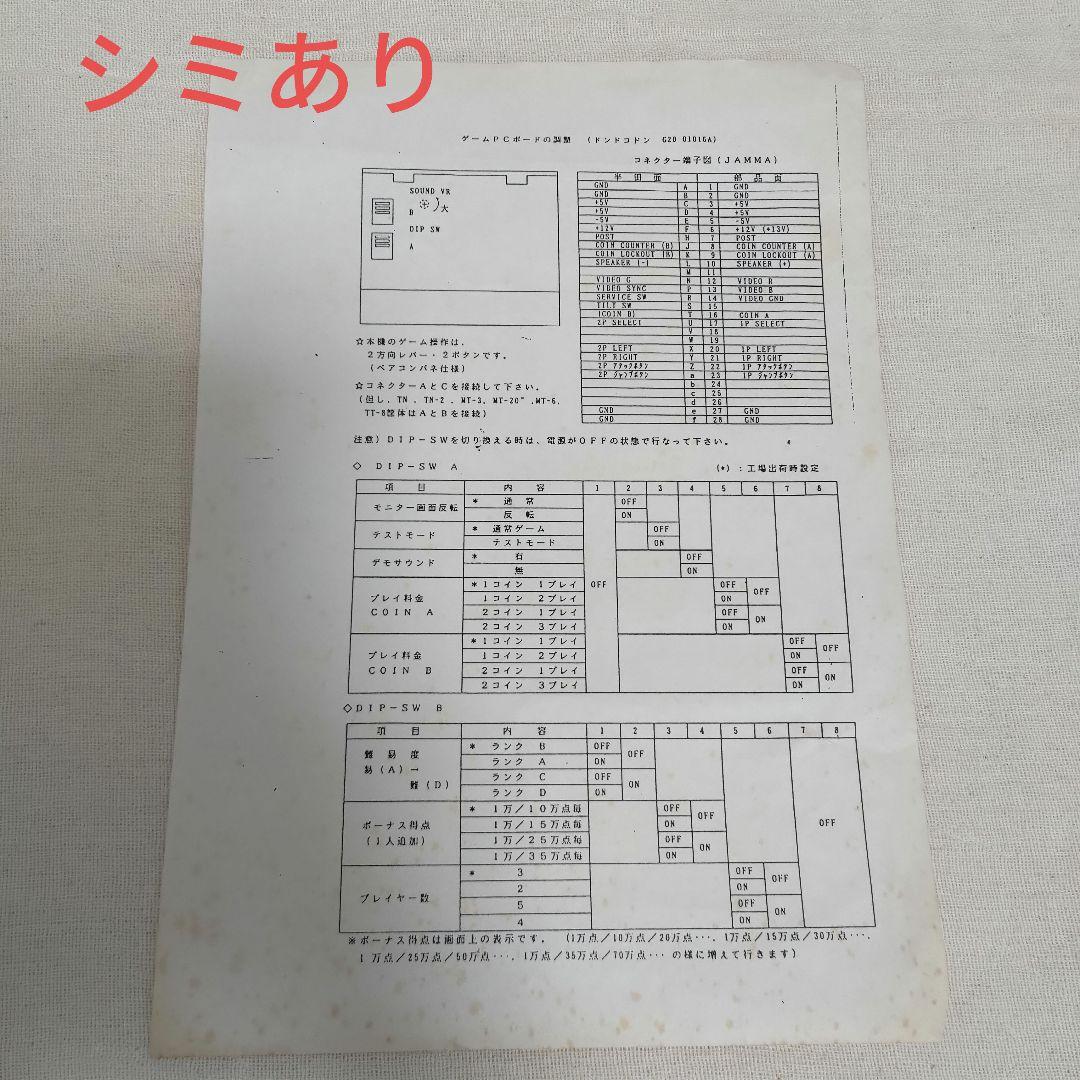 シミあり
ゲームPCボードの調整 (ドンドコドン G20 01016A)
コネクター端子図(JAMMA)
SOUND VR
大
B
DIP SW
A
半田面 部品面
GND A 1 GND
GND B 2 GND
+5V C 3 +5V
+5V D 4 +5V
-5V E 5 -5V
+12V F 6 +12V (+13V)
POST H 7 POST
COIN COUNTER (B) J 8 COIN COUNTER (A)
COIN LOCKOUT (B) K 9 COIN LOCKOUT (A)
SPEAKER (-) L 10 SPEAKER (+)
M 11
VIDEO G N 12 VIDEO R
VIDEO SYNC P 13 VIDEO B
SERVICE SW R 14 VIDEO GND
TILT SW S 15
(COIN B) T 16 COIN A
2P SELECT U 17 1P SELECT
V 18
W 19
2P LEFT X 20 1P LEFT
2P RIGHT Y 21 1P RIGHT
2P アタックボタン Z 22 1P アタックボタン
2P ジャンプボタン a 23 1P ジャンプボタン
b 24
c 25
d 26
GND e 27 GND
GND f 28 GND
☆本機のゲーム操作は、
2方向レバー・2ボタンです。
(ペアコンパネ仕様)
☆コネクターAとCを接続して下さい。
(但し、TN、TN-2、MT-3、MT-20"、MT-6、
TT-8筐体はAとBを接続)
注意)DIP-SWを切り換える時は、電源がOFFの状態で行なって下さい。
◇ DIP-SW A (*):工場出荷時設定
項目 内容 1 2 3 4 5 6 7 8
モニター画面反転 * 通常 OFF
反転 ON
テストモード * 通常ゲーム OFF
テストモード ON
デモサウンド * 有 OFF
無 ON
プレイ料金 COIN A *1コイン 1プレイ OFF OFF OFF
1コイン 2プレイ ON
2コイン 1プレイ OFF ON
2コイン 3プレイ ON
プレイ料金 COIN B *1コイン 1プレイ OFF OFF
1コイン 2プレイ ON
2コイン 1プレイ OFF ON
2コイン 3プレイ ON
◇DIP-SW B
項目 内容 1 2 3 4 5 6 7 8
難易度 * ランク B OFF OFF
易(A)→ ランク A ON
難(D) ランク C OFF ON
ランク D ON
ボーナス得点 * 1万/10万点毎 OFF OFF OFF
(1人追加) 1万/15万点毎 ON
1万/25万点毎 OFF ON
1万/35万点毎 ON
プレイヤー数 * 3 OFF OFF
2 ON
5 OFF ON
4 ON
※ボーナス得点は画面上の表示です。(1万点/10万点/20万点…、1万点/15万点/30万点…、
1万点/25万点/50万点…、1万点/35万点/70万点… の様に増えて行きます)